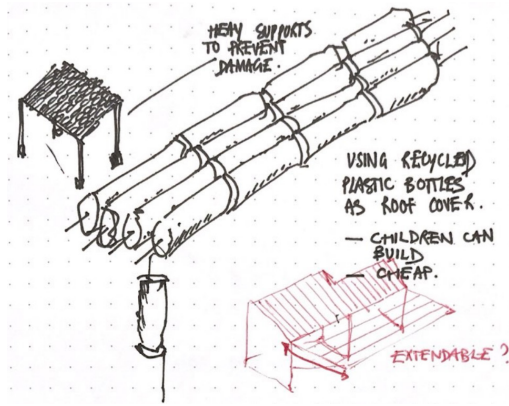 HEAVY SUPPORTS
TO PREVENT
DAMAGE.
USING RECYCLED
PLASTIC BOTTLES
AS ROOF COVER.
— CHILDREN CAN
BUILD
— CHEAP.
EXTENDABLE?